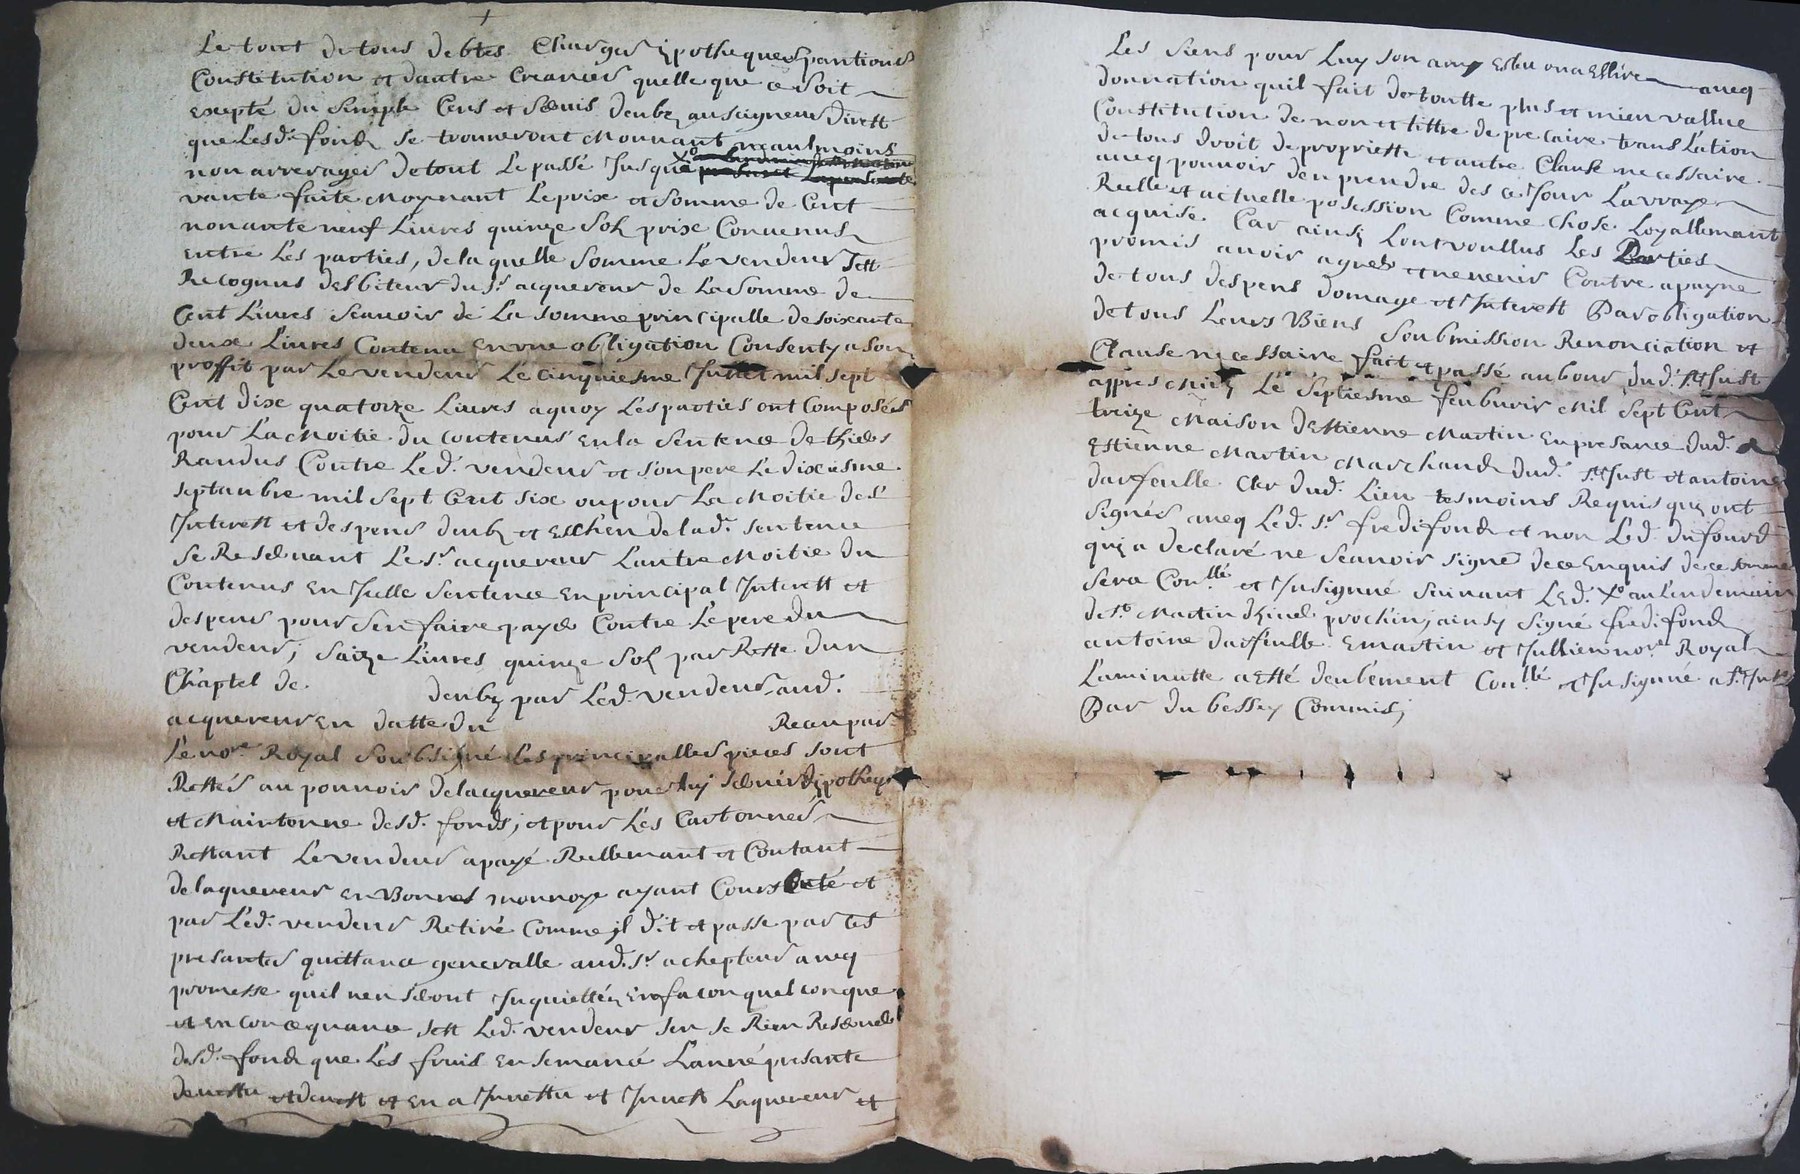 Le tout de tous debtes Charges ypotheques pantions
Constitution et dautre Creances quelle que ce soit
Exepté du simple Cens et seruis deubz au seigneur dirett
que Lesd. fondz se trouueront Mouuant neaulmoins
non arrerages de tout Le passé Jusque
vante faite Moynant Le prix et somme de Cent
nonante neuf Liures quinze Solz prix Conuenus
Entre Les parties, de laquelle somme Le vendeur sest
Recognus desbiteur du Sr. acquereur de La somme de
Cent Liures scauoir de La somme principalle de soixante
deux Liures Contenu En vne obligation Consenty a son
proffit par Le vendeur Le cinquiesme Juliet mil sept
Cent dix quatorze Liures a quoy Les parties ont Composées
pour La Moitie du Contenus En la sentence de
Randus Contre Led. vendeur et son pere Le dixiesme
septambre mil sept Cent six ou pour La Moitie des
Interest et despens deubz et Esche de lad. sentence
se Reseruant Le Sr. acquereur Lautre Moitie du
Contenus En Jcelle sentence En principal Interest et
despens pour sen faire payé Contre Le pere du
vendeur; saize Liures quinze Solz par Reste dun
Chaptel de deubz par Led. vendeur aud.
acquereur En datte du Receu par
Le nore. Royal soubsigné Les principalles pieces sont
Restés au pouuoir de lacquereur pour luy seruir dypotheque
et Maintenue desd. fonds; et pour Les
Restant Le vendeur a payé Rellemant et Contant
de laquereur En Bonnes monnoye ayant Cours et
par Led. vendeur Retiré Comme jl dit et passe par ces
presantes quittance generalle aud. Sr. achepteur aueq
promesse quil nen seront Inquiettés En facon quelconque
et En Concequance sest Led. vendeur sen se Rien Reserué
desd. fondz que Les fruis En semancé Lanné presante
deuestu et deuest et En a Inuestu et Inuest Laquereur et
Les siens pour Luy son amy Esleu ou a Eslire aueq
donnation quil fait de toutte plus et mieu vallue
Constitution de non et tittre de precaire translation
de tous droit de propriette et autre Clause necessaire
aueq pouuoir den prendre des ce Jour La vraye
Reelle et actuelle possession Comme Chose Loyallemant
acquise. Car ainsy Lont voullus Les Parties
promis auoir agreé et ne venir Contre a payne
de tous despens domage et Interest Par obligation
de tous Leurs Biens soubmission Renonciation et
Clause necessaire fait et passé au bour dud. St. Just
appres Midy Le septiesme feuburir Mil Sept Cent
treize Maison dEstienne Martin En presance dud.
Estienne Martin Marchand dud. St. Just et antoine
darfeulle Cler dud. Lieu tesmoins Requis quy ont
signés aueq Led. Sr. fredifond et non Led. Dufour
quy a declaré ne scauoir signé de ce Enquis de ce somme
sera Conllé. et Insignué suiuant Led. au Lendemain
de St. Martin dhiuer prochin; ainsy signé fredifond
antoine darfeulle E martin et Jullien nore. Royal
La minutte a Esté deubement Conllé. et Insignué a St. Just
Par du bessey Commis;